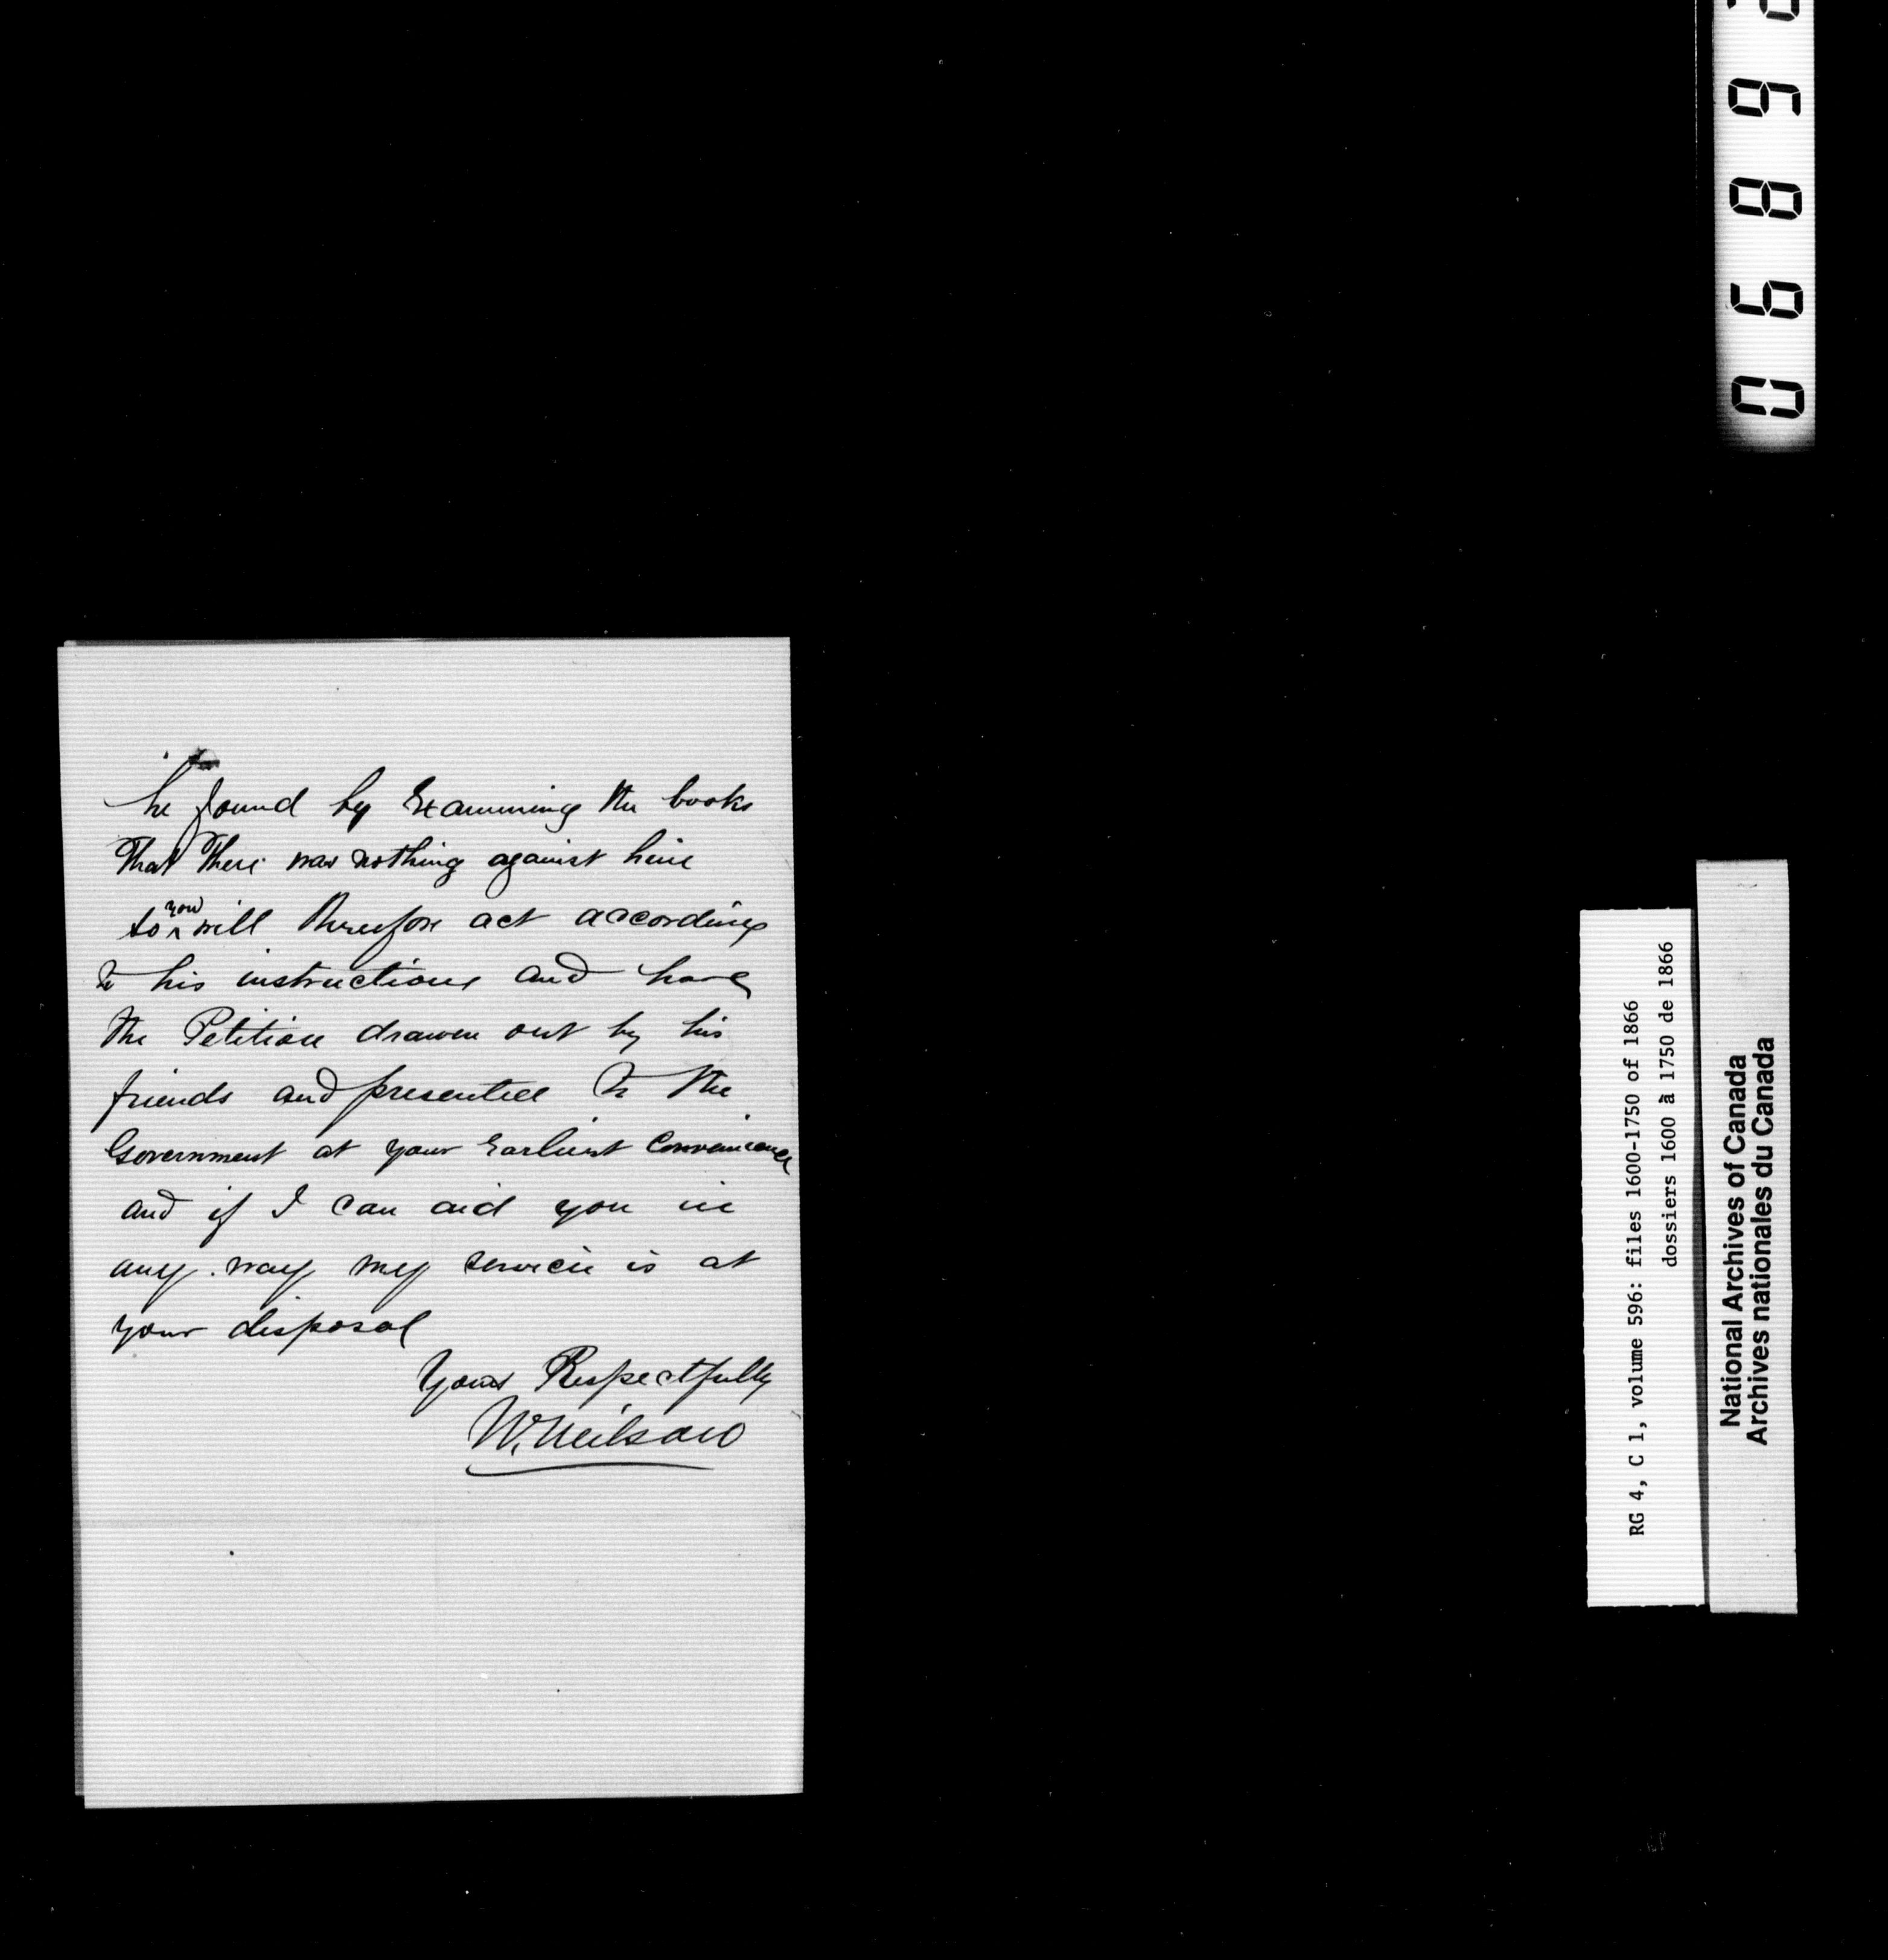 he found by Examining the books
That There was nothing against him
so you will therefore act according
to his instructions and have
the Petition drawn out by his
friends and presented to the
Government at your Earliest Convenience
and if I can aid you in
any way my service is at
your disposal
Yours Respectfully
W. Neilson
0689
RG 4, C 1, volume 596: files 1600-1750 of 1866
dossiers 1600 à 1750 de 1866
National Archives of Canada
Archives nationales du Canada